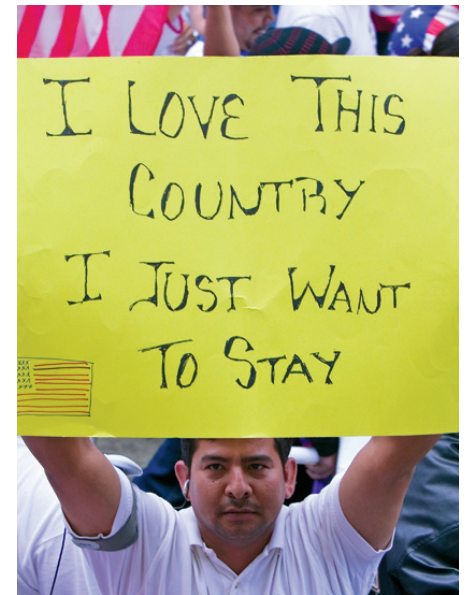 I LOVE THIS
COUNTRY
I JUST WANT
TO STAY